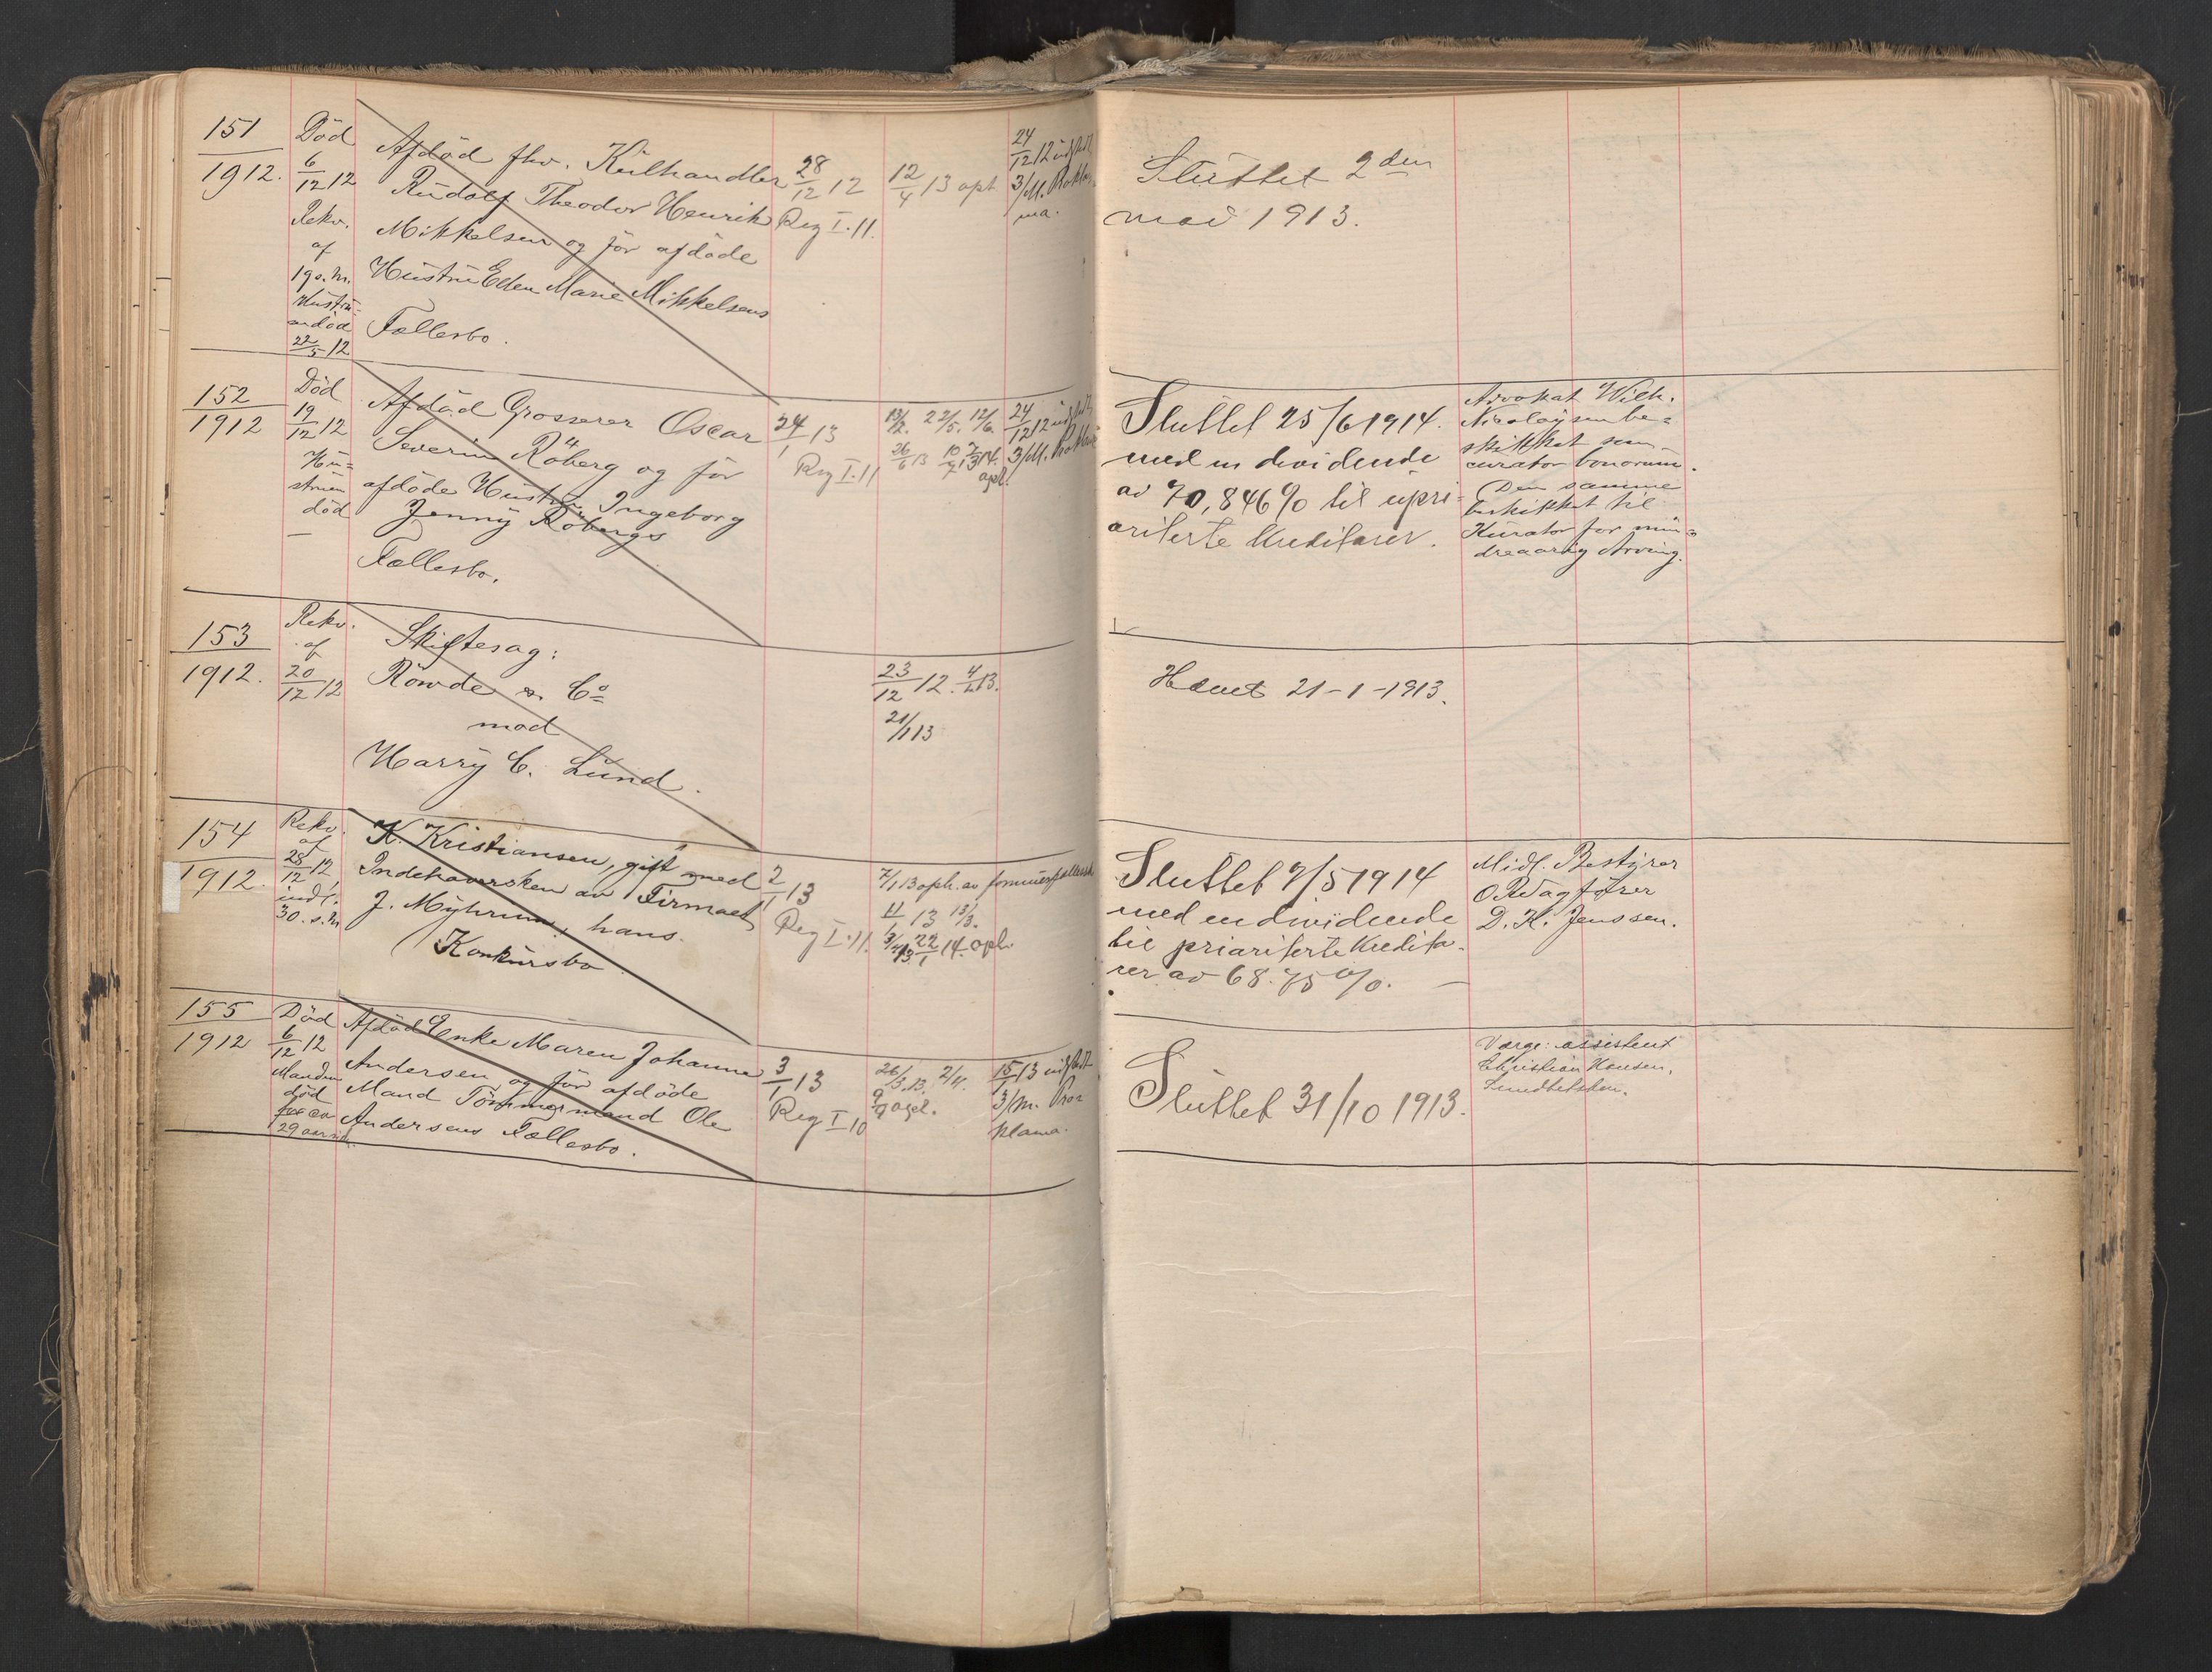 151
1912.
Död
6/12 12
Rekv.
af
19 s. m.
Hustru-
en död
22/5 12
Afdöd fhv. Kulhandler
Rudolf Theodor Henrik
Mikkelsen og för afdöde
Hustru Ellen Marie Mikkelsens
Fællesbo.
28/12 12
Reg I. 11.
12/4 13 opt.
24/12 12 udstedt
3/M. Prokla-
ma.
Sluttet 2den
mai 1913.
152
1912
Död
19/12 12
Hu-
struen
död
—
Afdöd Grosserer Oscar
Severin Röberg og för
afdöde Hustru Ingeborg
Jenny Röbergs
Fællesbo.
24/1 13
Reg I. 11
13/2. 22/5. 12/6.
26/6 13
opl.
24/12 12 udstedt
3/M. Proklama
Sluttet 25/6 1914.
med en dividende
av 70,846% til upri-
oriterte Kreditorer.
Advokat Wilh.
Nicolaysen be-
skikket som
curator bonorum.
Den samme
beskikket til
Kurator for min-
dreaarig Arving.
153
1912.
Rekv.
af
20/12 12
Skiftesag:
Röwde & Co
mod
Harry C. Lund.
23/12 12. 4/1 13.
21/1 13
Hævet 21-1-1913.
154
1912.
Rekv.
af
28/12 12,
indl.
30. s. m
K. Kristiansen, gift med
Indehaversken av Firmaet
J. Myhrum, hans
Konkursbo
2/1 13
Reg I. 11.
7/1 13 oph. av formuesfællessk
11/1 13 13/3.
3/4 13. 22/1 14. oph
Sluttet 7/5 1914
med en dividende
til prioriterte Kredito-
rer av 68.75%.
Midl. Bestyrer
O.R.Sagfører
D. K. Jenssen.
155
1912
Död
6/12 12
Manden
död
for ca
29 aar siden.
Afdöd Enke Maren Johanne
Andersen og för afdöde
Mand Tömmermand Ole
Andersens Fællesbo.
3/1 13
Reg I 10
26/3 13. 2/4.
9/9 opl.
15/1 13 udstedt
3/M. Pro-
klama.
Sluttet 31/10 1913.
Værge: assistent
Christian Hansen,